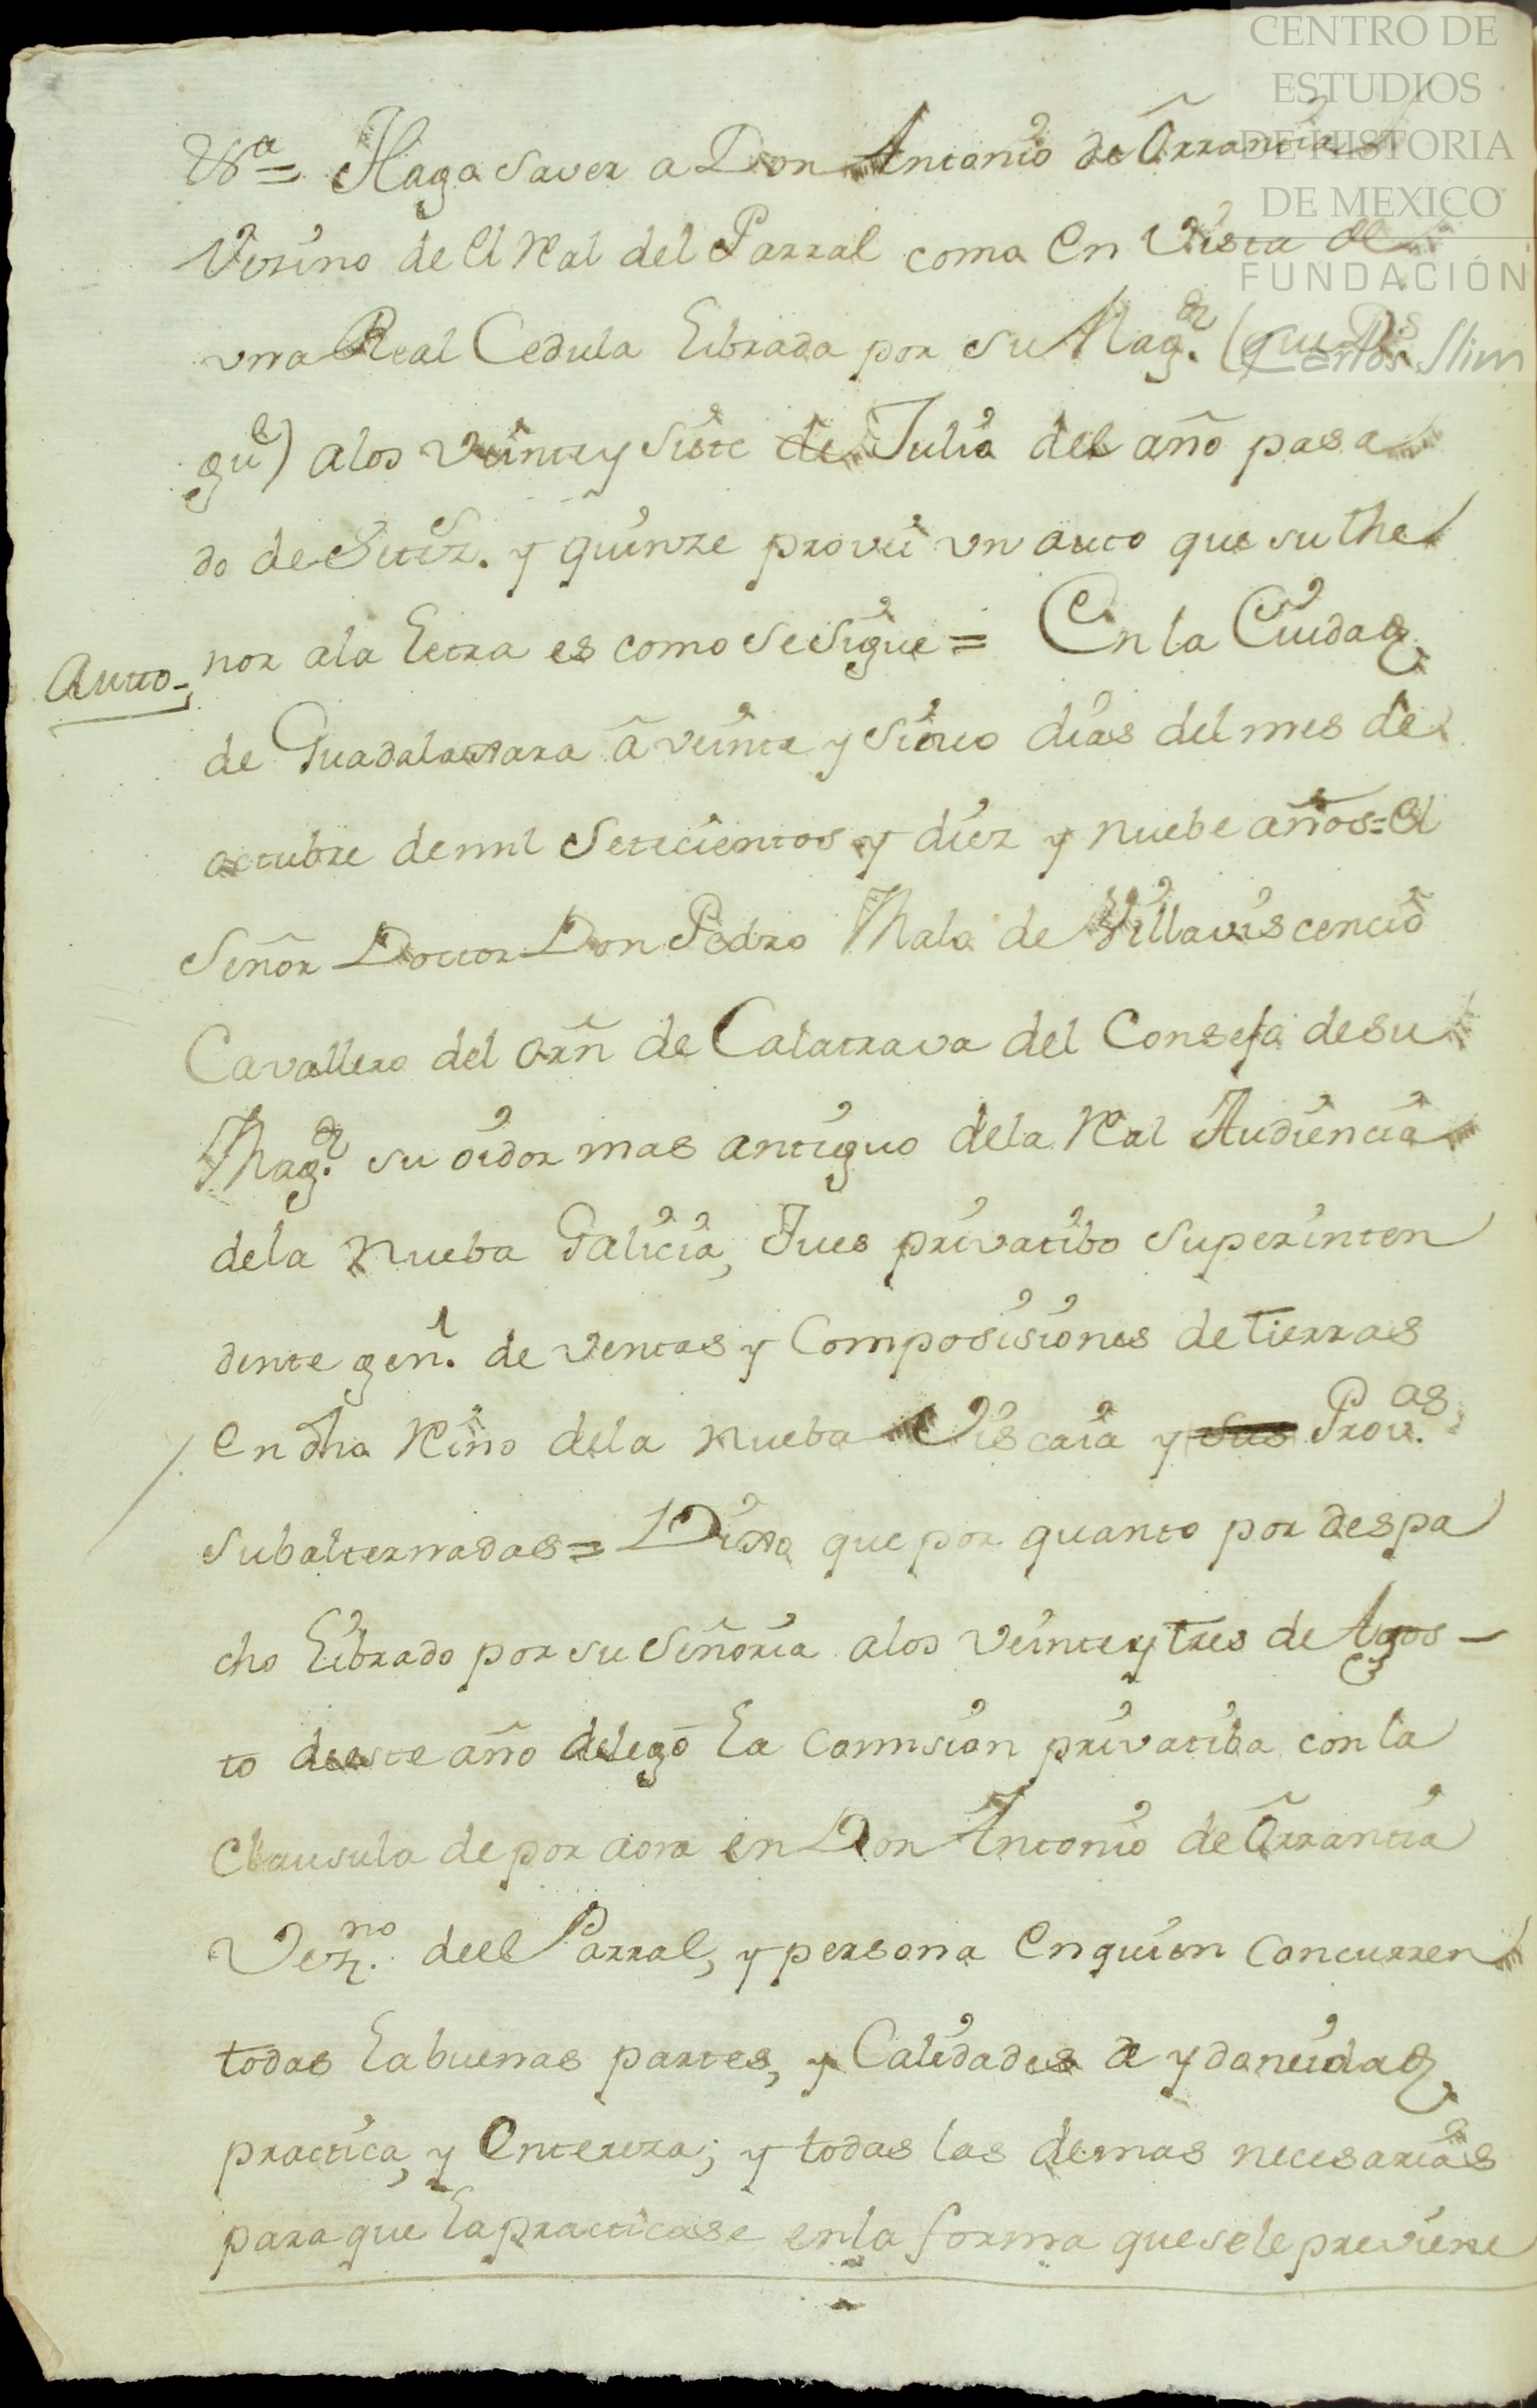 CENTRO DE
ESTUDIOS
DE HISTORIA
DE MEXICO
FUNDACIÓN
Carlos Slim
Haga saver a Don Antonio de Orrantia
Vezino de el Ral del Parral como en Vista de
vna Real Cedula librada por su Magd. (que Ds
gue) alos veinte y siete de Julio del año pasa
do de Setezs. y quinze provei vn auto que su the
nor ala letra es como se sigue = En la Ciudad
Autto
de Guadalaxara â veinte y cinco dias del mes de
octubre de mil setecientos y diez y nuebe años = el
Señor Doctor Don Pedro Malo de Villaviscencio
Cavallero del orñ de Calatrava del Consejo de su
Magd. su oidor mas antiguo dela Ral Audiencia
dela Nueba Galicia, Jues privatibo Superinten
dente genl. de ventas y Composisiones de tierras
en dho Rino dela Nueba Viscaia y sus Provas.
subalternadas = Dixo que por quanto por despa
cho librado por su Señoria alos veinte y tres de Agos-
to deeste año delegó la comision privatiba con la
Clausula de por aora en Don Antonio de Orrantia
Vezno. deel Parral, y persona en quien concurren
todas la buenas partes, y Calidades de ydoneidad
practica, y entereza; y todas las demas necesarias
para que la practicase en la forma que se le previene